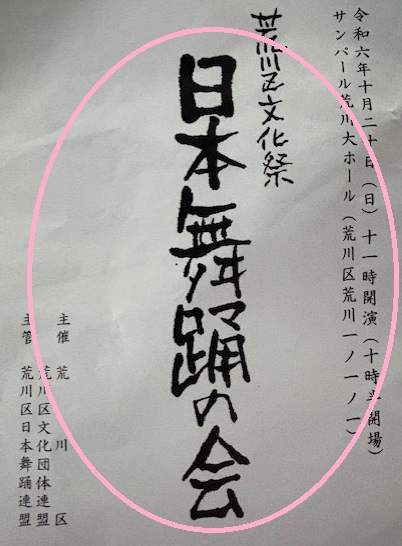 令和六年十月二十日（日）十一時開演（十時半開場）
サンパール荒川大ホール（荒川区荒川一ノ一ノ一）
荒川区文化祭
日本舞踊の会
主催　荒川区
荒川区文化団体連盟
主管　荒川区日本舞踊連盟